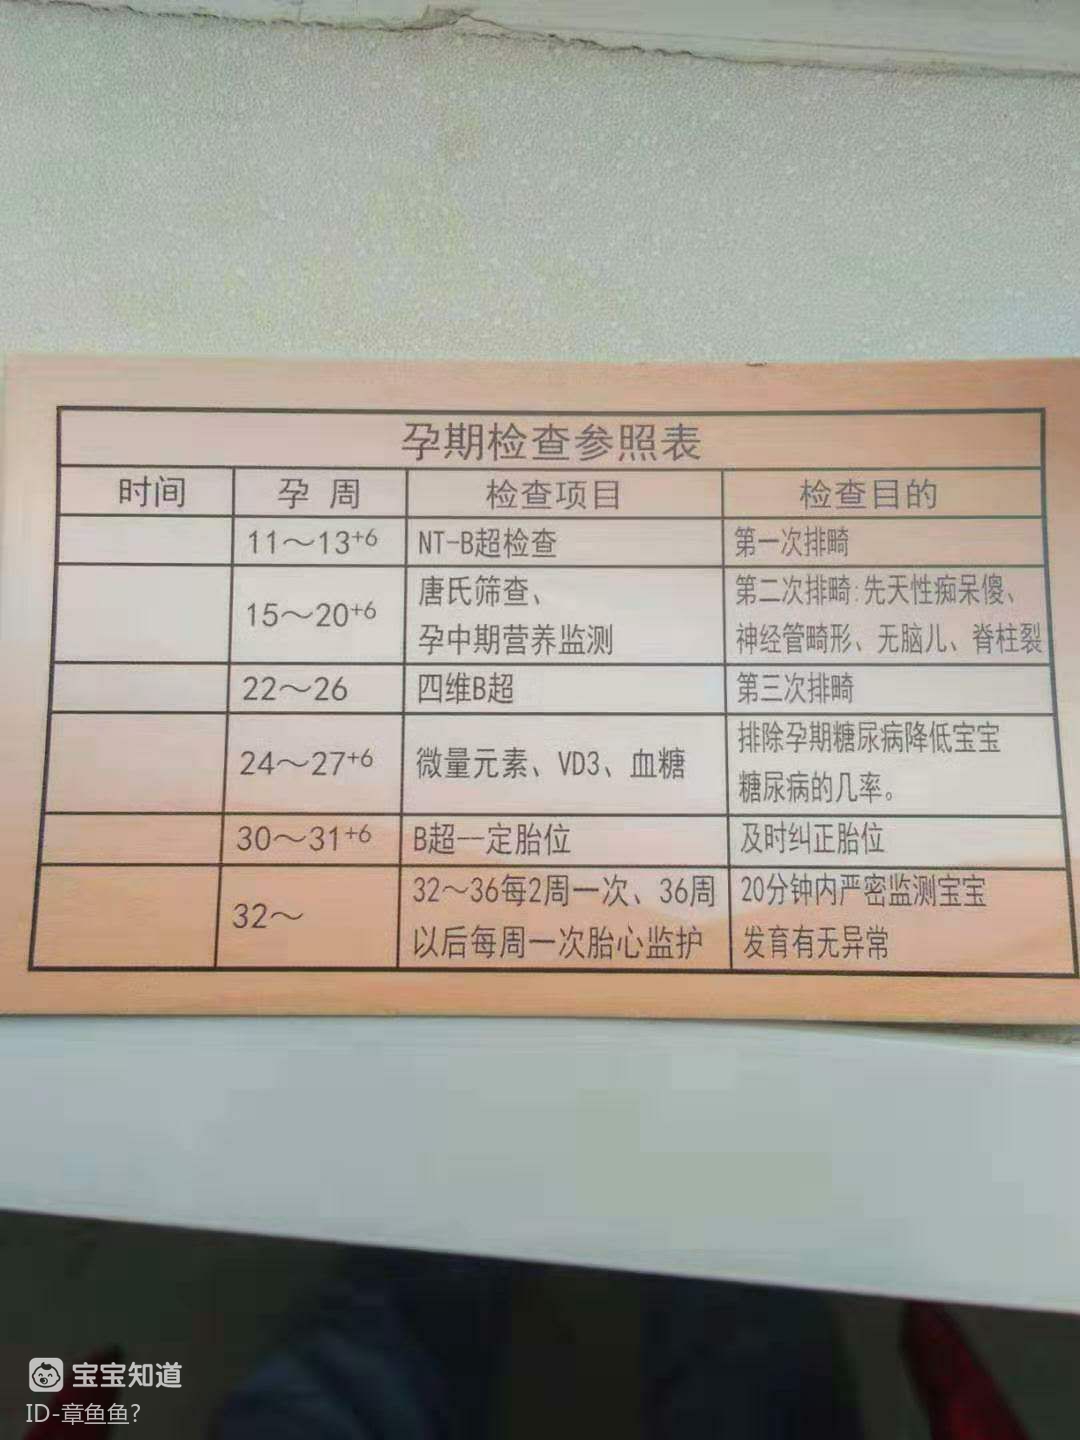 孕期检查参照表
时间 孕 周 检查项目 检查目的
11～13+6 NT-B超检查 第一次排畸
15～20+6 唐氏筛查、 第二次排畸:先天性痴呆傻、
孕中期营养监测 神经管畸形、无脑儿、脊柱裂
22～26 四维B超 第三次排畸
24～27+6 微量元素、VD3、血糖 排除孕期糖尿病降低宝宝
糖尿病的几率。
30～31+6 B超--定胎位 及时纠正胎位
32～ 32～36每2周一次、36周 20分钟内严密监测宝宝
以后每周一次胎心监护 发育有无异常
宝宝知道
ID-章鱼鱼?